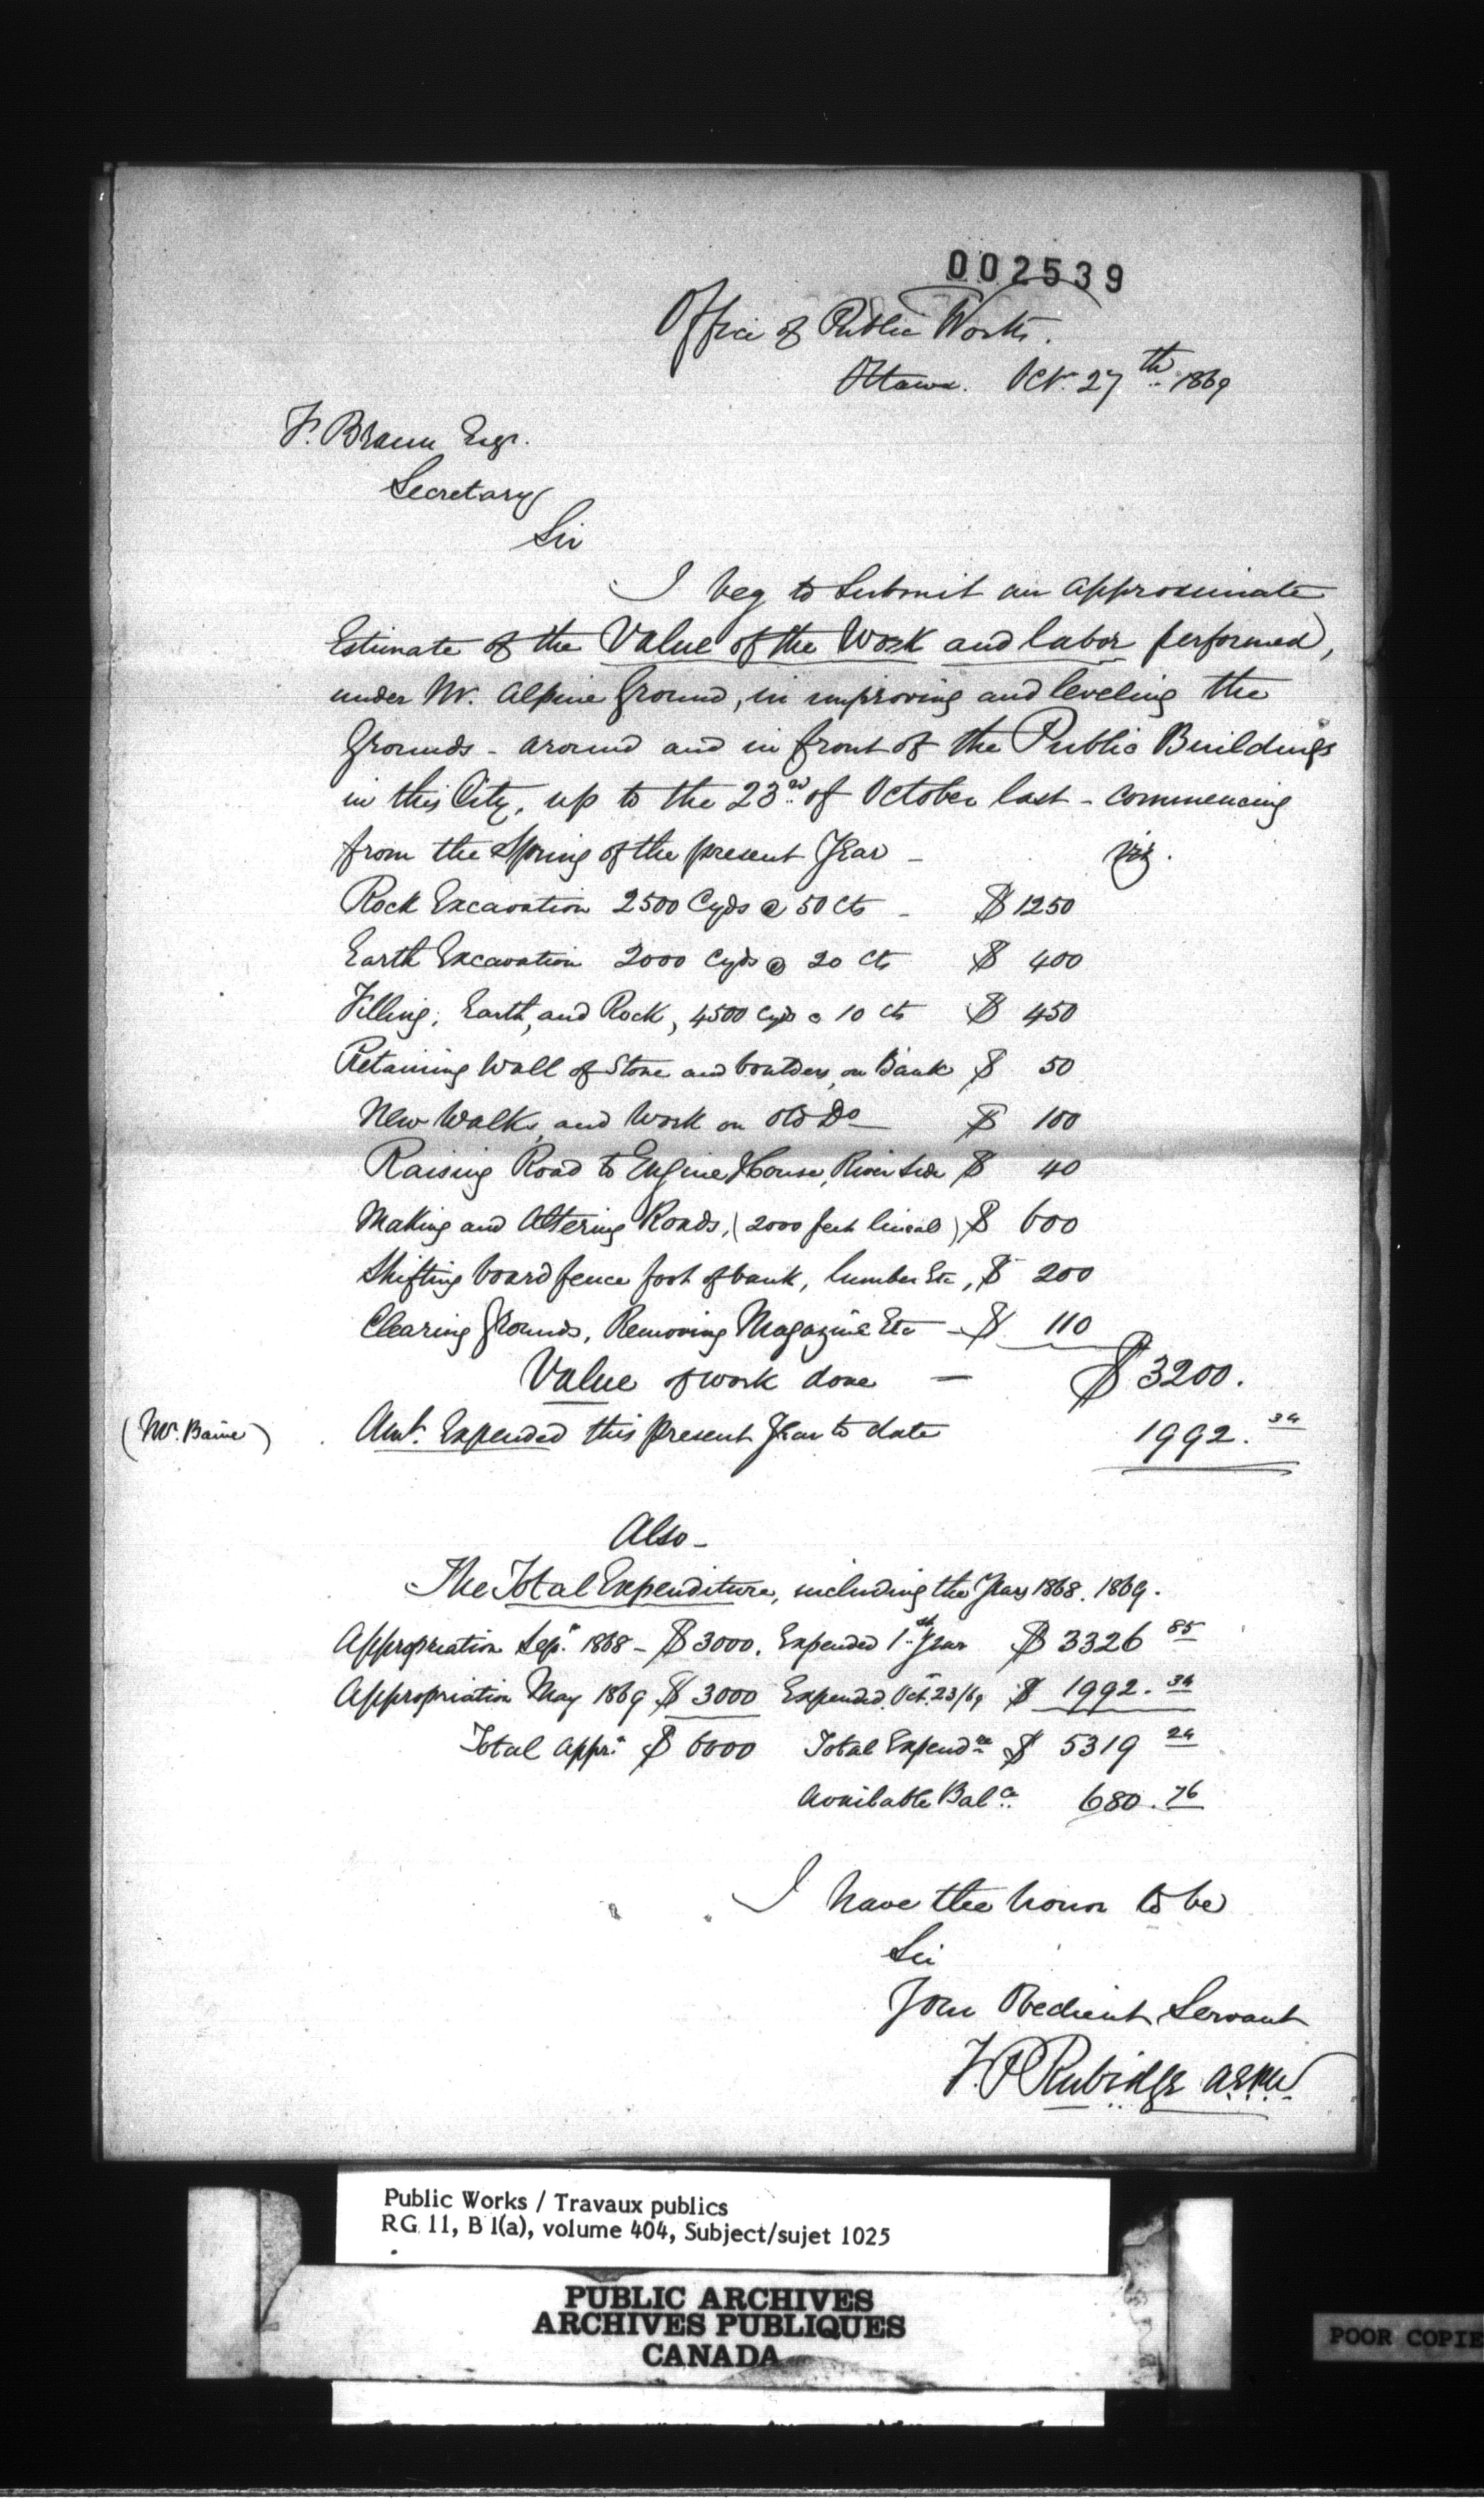 002539
Office of Public Works.
Ottawa. Oct. 27th 1869
F. Braun Esqr.
Secretary
Sir
I beg to submit an approximate
Estimate of the Value of the Work and labor performed,
under Mr. Alpine Ground, in improving and leveling the
Grounds - around and in front of the Public Buildings
in this City, up to the 23rd of October last - commencing
from the Spring of the present Year - viz.
Rock Excavation 2500 Cyds @ 50 Cts - $ 1250
Earth Excavation 2000 Cyds @ 20 Cts $ 400
Filling, Earth, and Rock, 4500 Cyds @ 10 Cts $ 450
Retaining Wall of Stone and boulders, on Bank $ 50
New Walks, and Work on old Do $ 100
Raising Road to Engine House, River side $ 40
Making and Altering Roads, (2000 feet lineal) $ 600
Shifting board fence foot of bank, lumber Etc, $ 200
Clearing Grounds, Removing Magazine Etc - $ 110
Value of work done - $ 3200.
(Mr. Baine) Amt. Expended this present Year to date 1992.34
Also -
The Total Expenditure, including the Years 1868. 1869.
Appropriation Sepr. 1868 - $ 3000. Expended 1st Year $ 3326 85
Appropriation May 1869 $ 3000 Expended Oct. 23/69 $ 1992.34
Total Apprn. $ 6000 Total Expendre $ 5319 24
Available Balce 680.76
I have the honor to be
Sir
Your Obedient Servant
F.P Rubidge A.E.P.W.
Public Works / Travaux publics
RG 11, B 1(a), volume 404, Subject/sujet 1025
PUBLIC ARCHIVES
ARCHIVES PUBLIQUES
CANADA
POOR COPIE